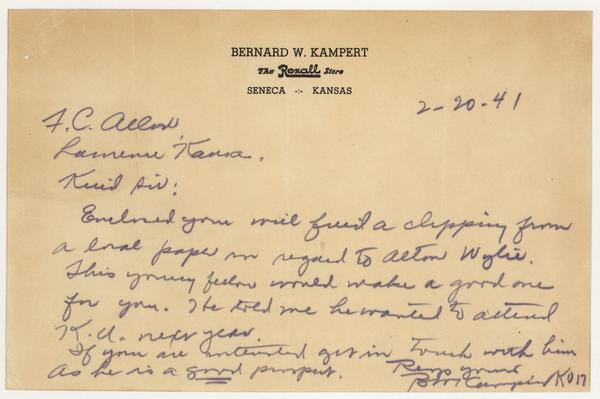 BERNARD W. KAMPERT
The Rexall Store
SENECA -:- KANSAS
2-20-41
F. C. Allen
Lawrence Kansa.
Kind Sir:
Enclosed you will find a clipping from
a local paper in regard to Alton Wylie.
This young fellow would make a good one
for you. He told me he wanted to attend
K.U. next year.
If you are interested get in touch with him
as he is a good prospect.
Resp yours
BW Kampert KU17